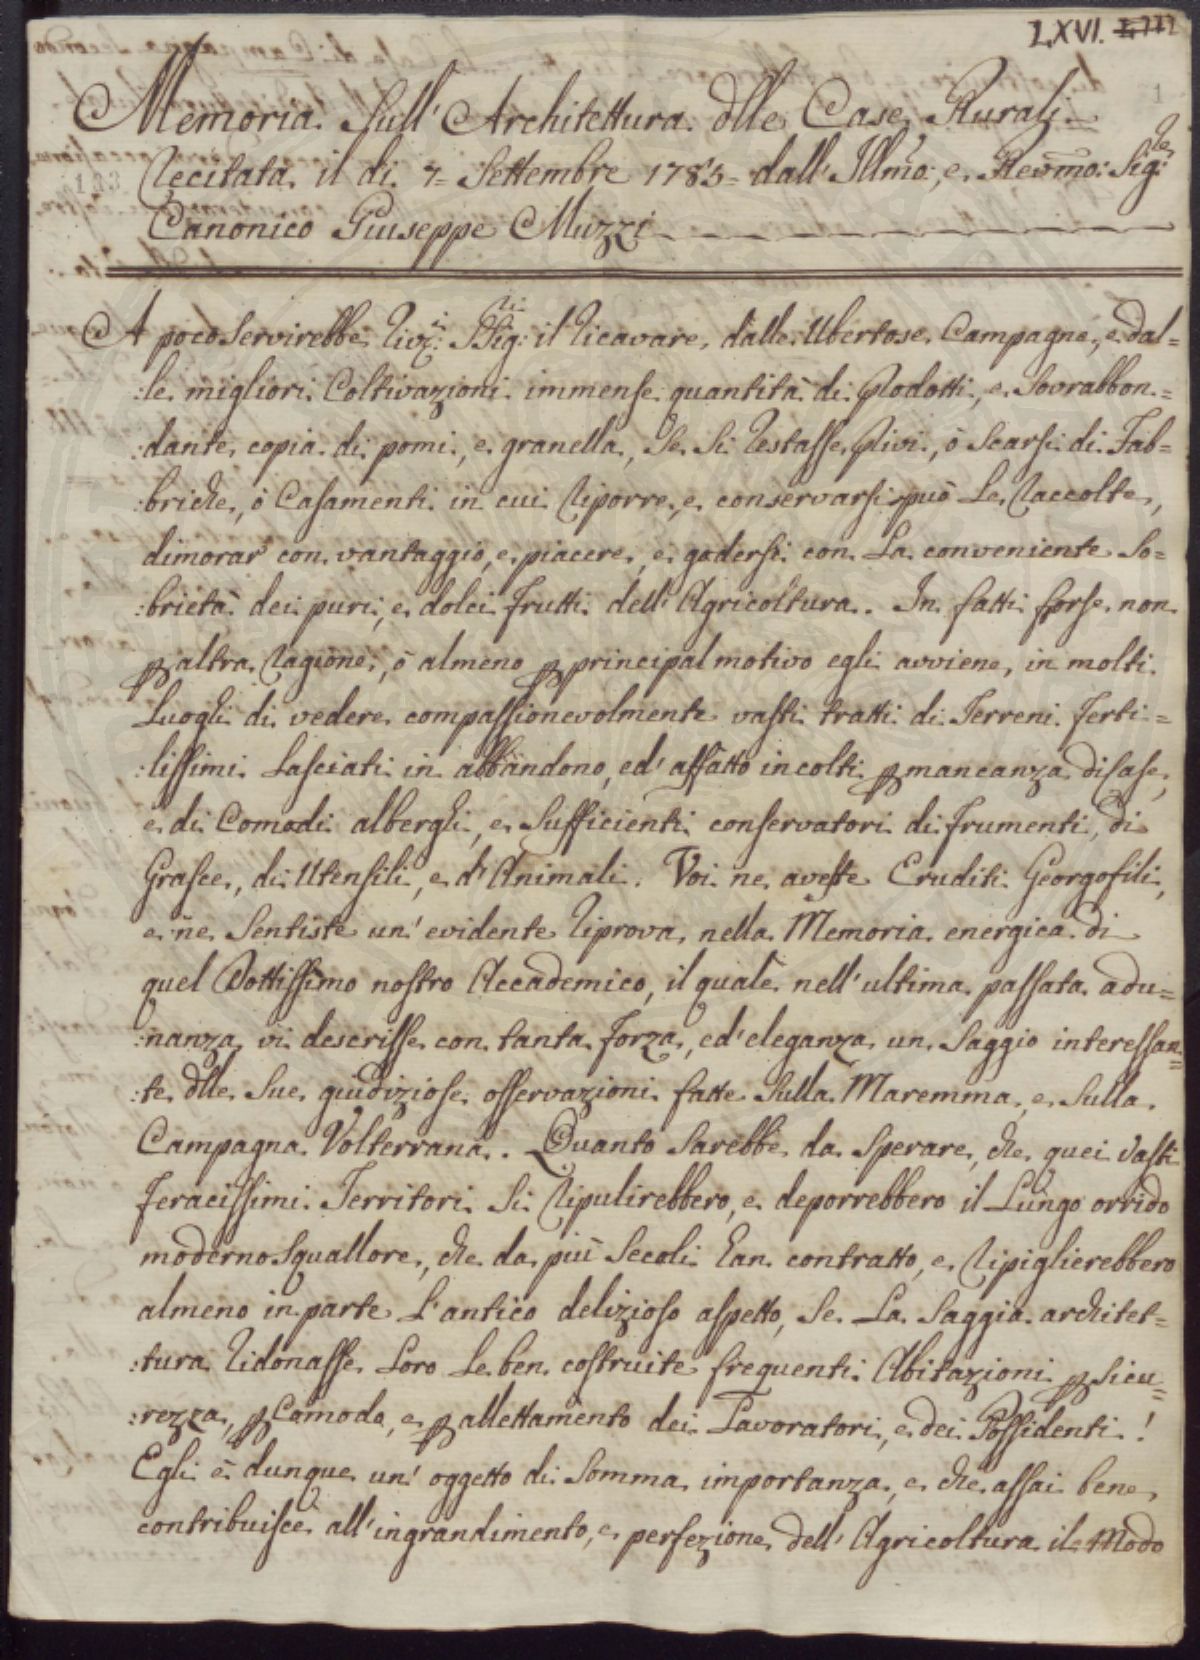 LXVI.
1
Memoria Sull' Architettura dlle Case Rurali
Recitata il dì 7= Settembre 1785= dall' Illmo:, e Revmo: Sig:re
133
Canonico Giuseppe Muzzi
A poco Servirebbe Rivz:i SSig:ri il ricavare dalle Ubertose Campagne, e dal=
:le migliori Coltivazioni immense quantità di Prodotti, e Sovrabbon=
:dante copia di pomi, e granella, Se Si restasse Privi, ò Scarsi di Fab=
:briche, ò Casamenti in cui riporre, e conservarsi può Le raccolte,
dimorar con vantaggio, e piacere, e godersi con La conveniente So=
:brietà dei puri, e dolci frutti dell' Agricoltura. In fatti forse non
p altra ragione, ò almeno p principal motivo egli avviene in molti
Luoghi di vedere compassionevolmente vasti tratti di Terreni ferti=
:lissimi Lasciati in abbandono, ed' affatto incolti p mancanza di Case,
e di Comodi alberghi, e Sufficienti conservatori di frumenti, di
Grasce, di Utensili, e d' Animali. Voi ne aveste Eruditi Georgofili,
e ne Sentiste un' evidente riprova nella Memoria energica di
quel Dottissimo nostro Accademico, il quale nell' ultima passata adu=
:nanza vi descrisse con tanta forza, ed' eleganza un Saggio interessan=
:te dlle Sue giudiziose osservazioni fatte Sulla Maremma, e Sulla
Campagna Volterrana. Quanto Sarebbe da Sperare, che quei Vasti
feracissimi Territori Si ripulirebbero, e deporrebbero il Lungo orrido
moderno Squallore, che da più Secoli han contratto, e ripiglierebbero
almeno in parte L' antico delizioso aspetto, Se La Saggia architet=
:tura ridonasse Loro Le ben costruite frequenti Abitazioni p Sicu=
:rezza, p Comodo, e p allettamento dei Lavoratori, e dei Possidenti!
Egli è dunque un' oggetto di Somma importanza, e che assai bene
contribuisce all' ingrandimento, e perfezione dell' Agricoltura il Modo